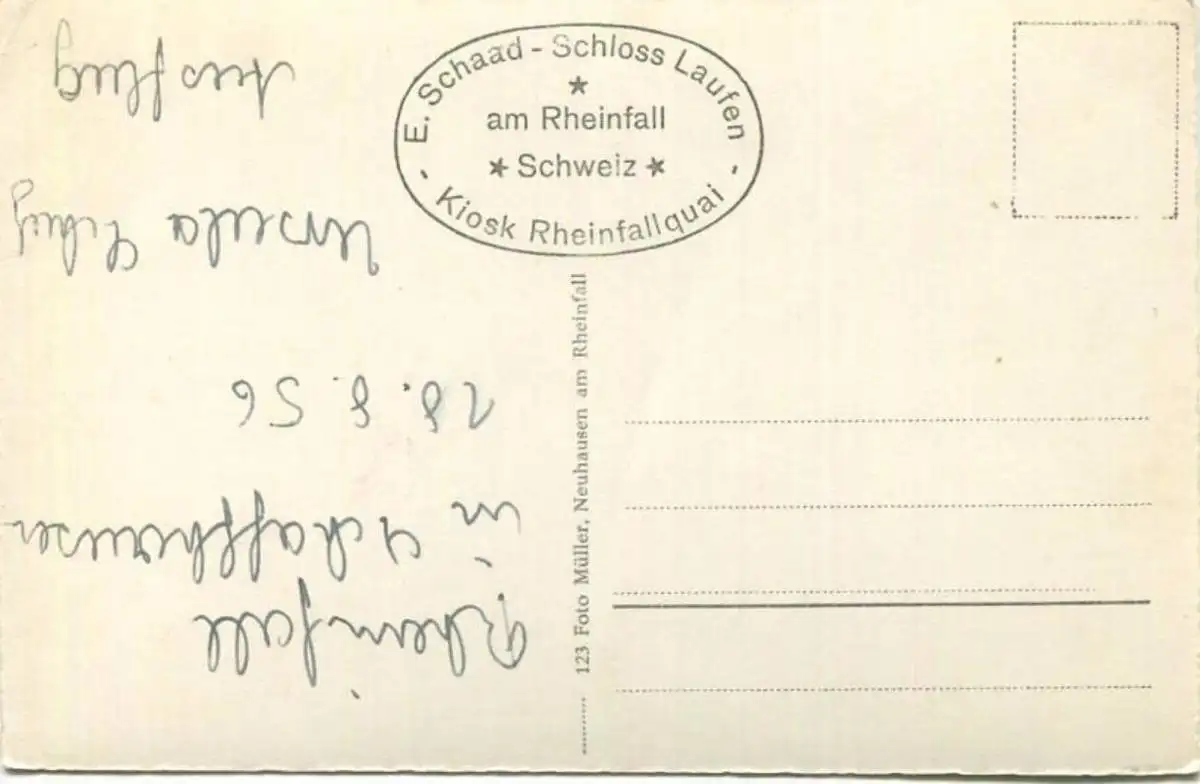 E. Schaad - Schloss Laufen
am Rheinfall
Schweiz
- Kiosk Rheinfallquai -
123 Foto Müller, Neuhausen am Rheinfall
Rheinfall
in Schaffhausen
28. 8. 56
Ursula
Ausflug